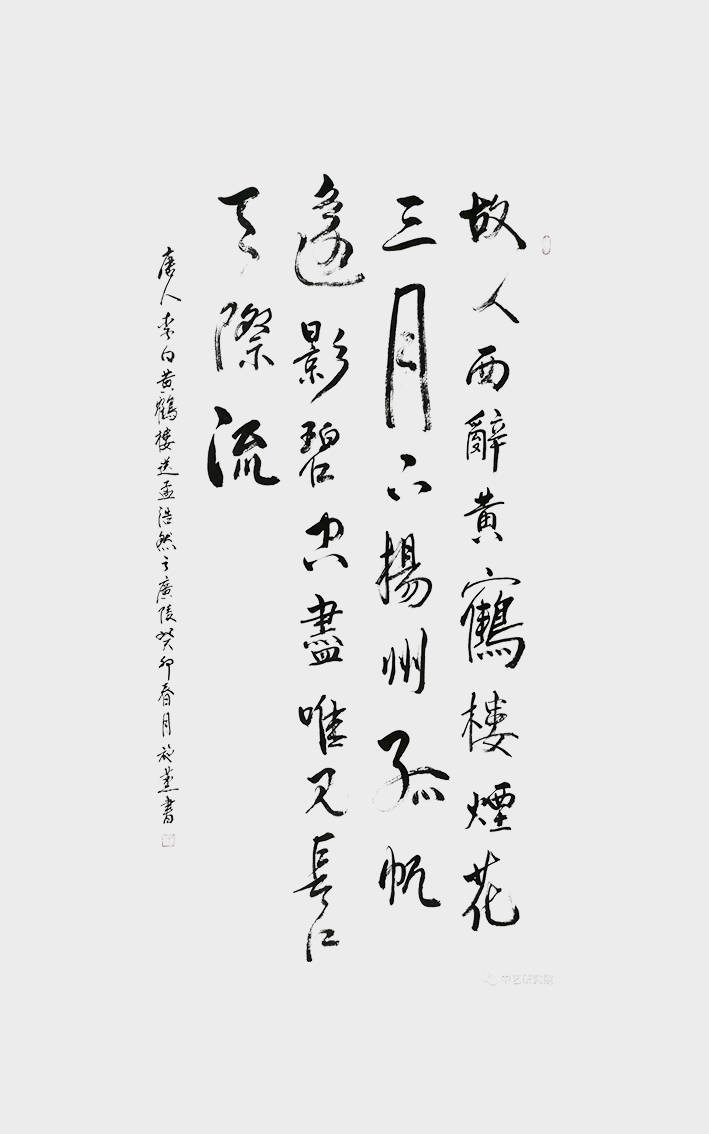 故人西辭黄鶴樓煙花
三月下揚州孤帆
遠影碧空盡唯見長江
天際流
唐人李白黄鶴樓送孟浩然之廣陵癸卯春月書
中艺研究院